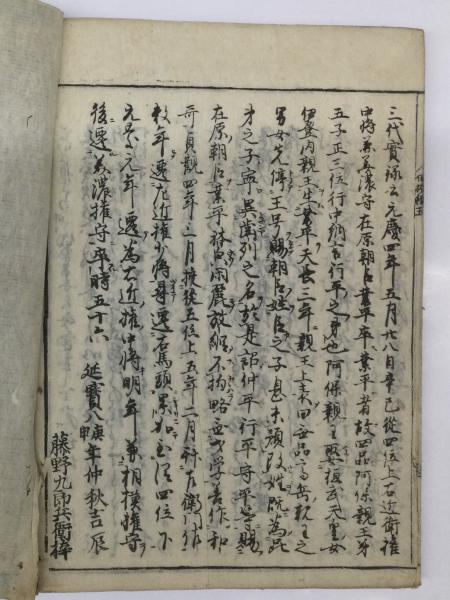 三代實録云元慶四年五月廿八日辛巳従四位上右近衛権
中将兼美濃守在原朝臣業平卒業平者故四品阿保親王第
五子正三位行中納言行平之弟也阿保親王娶桓武天皇女
伊登内親王生業平天長三年親王上表曰無品高岳親王之
男女先停王号賜朝臣姓臣之子息未預改姓既為昆
弟之子寧異歯列之名於是詔仲平行平守平等賜
在原朝臣業平體皃閑麗放縦不拘略無才学善作和
哥貞観四年三月授従五位上五年二月拝左衛門佐
数年遷左近権少将尋遷右馬頭累加至従四位下
元慶元年遷為右近権中将明年兼相模権守
後遷美濃権守卒時五十六
延寶八庚申年仲秋吉辰
藤野九郎兵衛梓